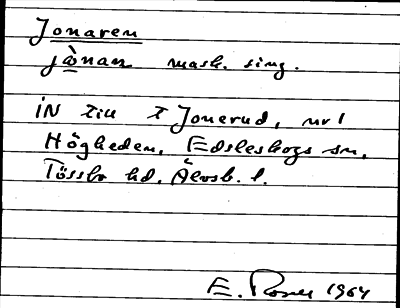 Jonaren
jònan mask. sing.
IN till t Jonerud, nr 1
Högheden, Edsleskogs sn,
Tössbo hd. Älvsb. l.
E. Rosell 1964